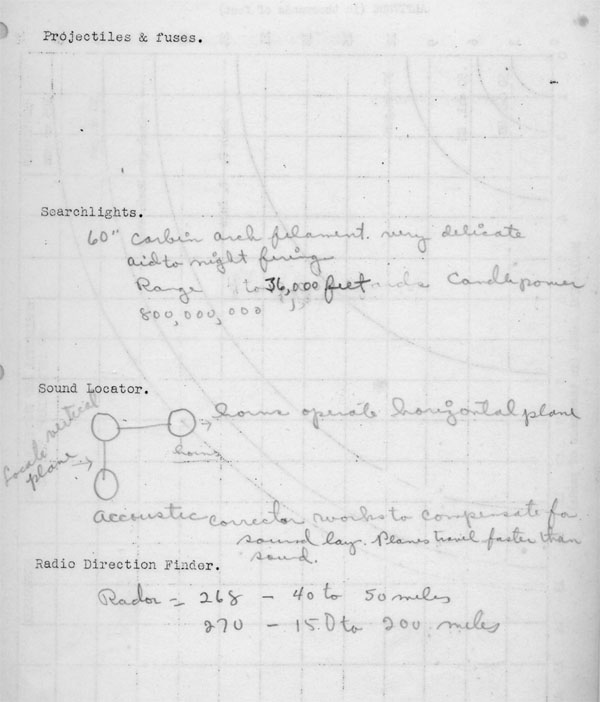 Projectiles & fuses.
Searchlights.
60" carbin arch filament. very delicate
aid to night firing
Range to 36,000 feet Candlepower
800,000,000
Sound Locator.
Locate vertical
plane →
→ horns operate horizontal plane
horns
accoustic corrector works to compensate for
sound lag. Planes travel faster than
sound.
Radio Direction Finder.
Rador = 268 - 40 to 50 miles
270 - 150 to 200 miles